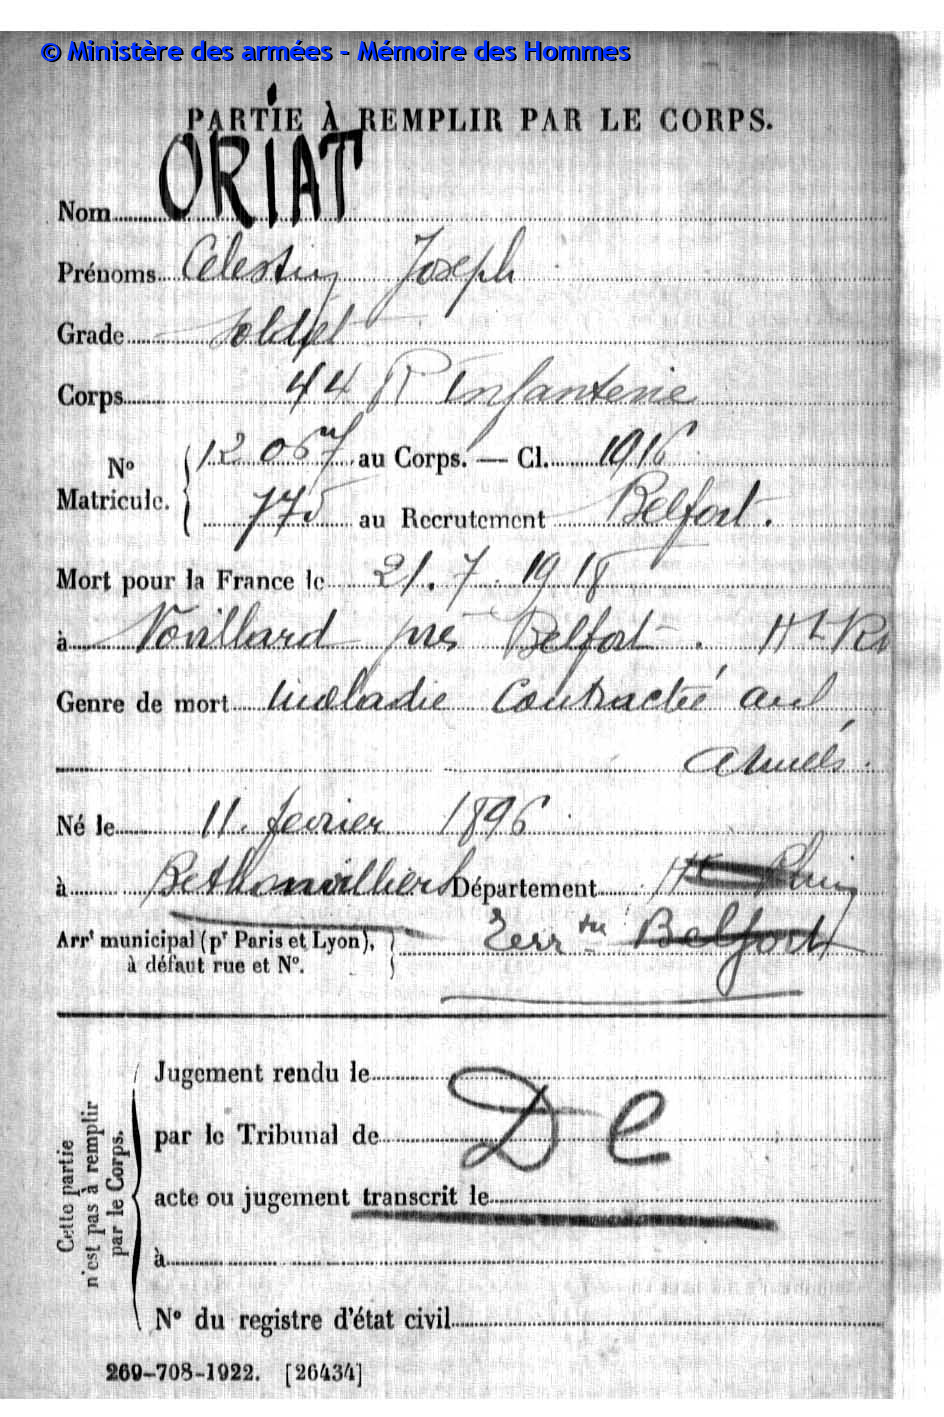 © Ministère des armées - Mémoire des Hommes
PARTIE À REMPLIR PAR LE CORPS.
Nom ORIAT
Prénoms Célestin Joseph
Grade soldat
Corps 44 R Infanterie
N° Matricule. 12067 au Corps. — Cl. 1916
775 au Recrutement Belfort.
Mort pour la France le 21.7.1918
à Novillard près Belfort. Ht Rh
Genre de mort maladie contractée aux
armées.
Né le 11 février 1896
à Bethonvilliers Département Ht Rhin
Arrt municipal (pr Paris et Lyon), à défaut rue et N°. Terr du Belfort
Cette partie n'est pas à remplir par le Corps.
Jugement rendu le
par le Tribunal de De
acte ou jugement transcrit le
à
N° du registre d'état civil
269-708-1922. [26434]